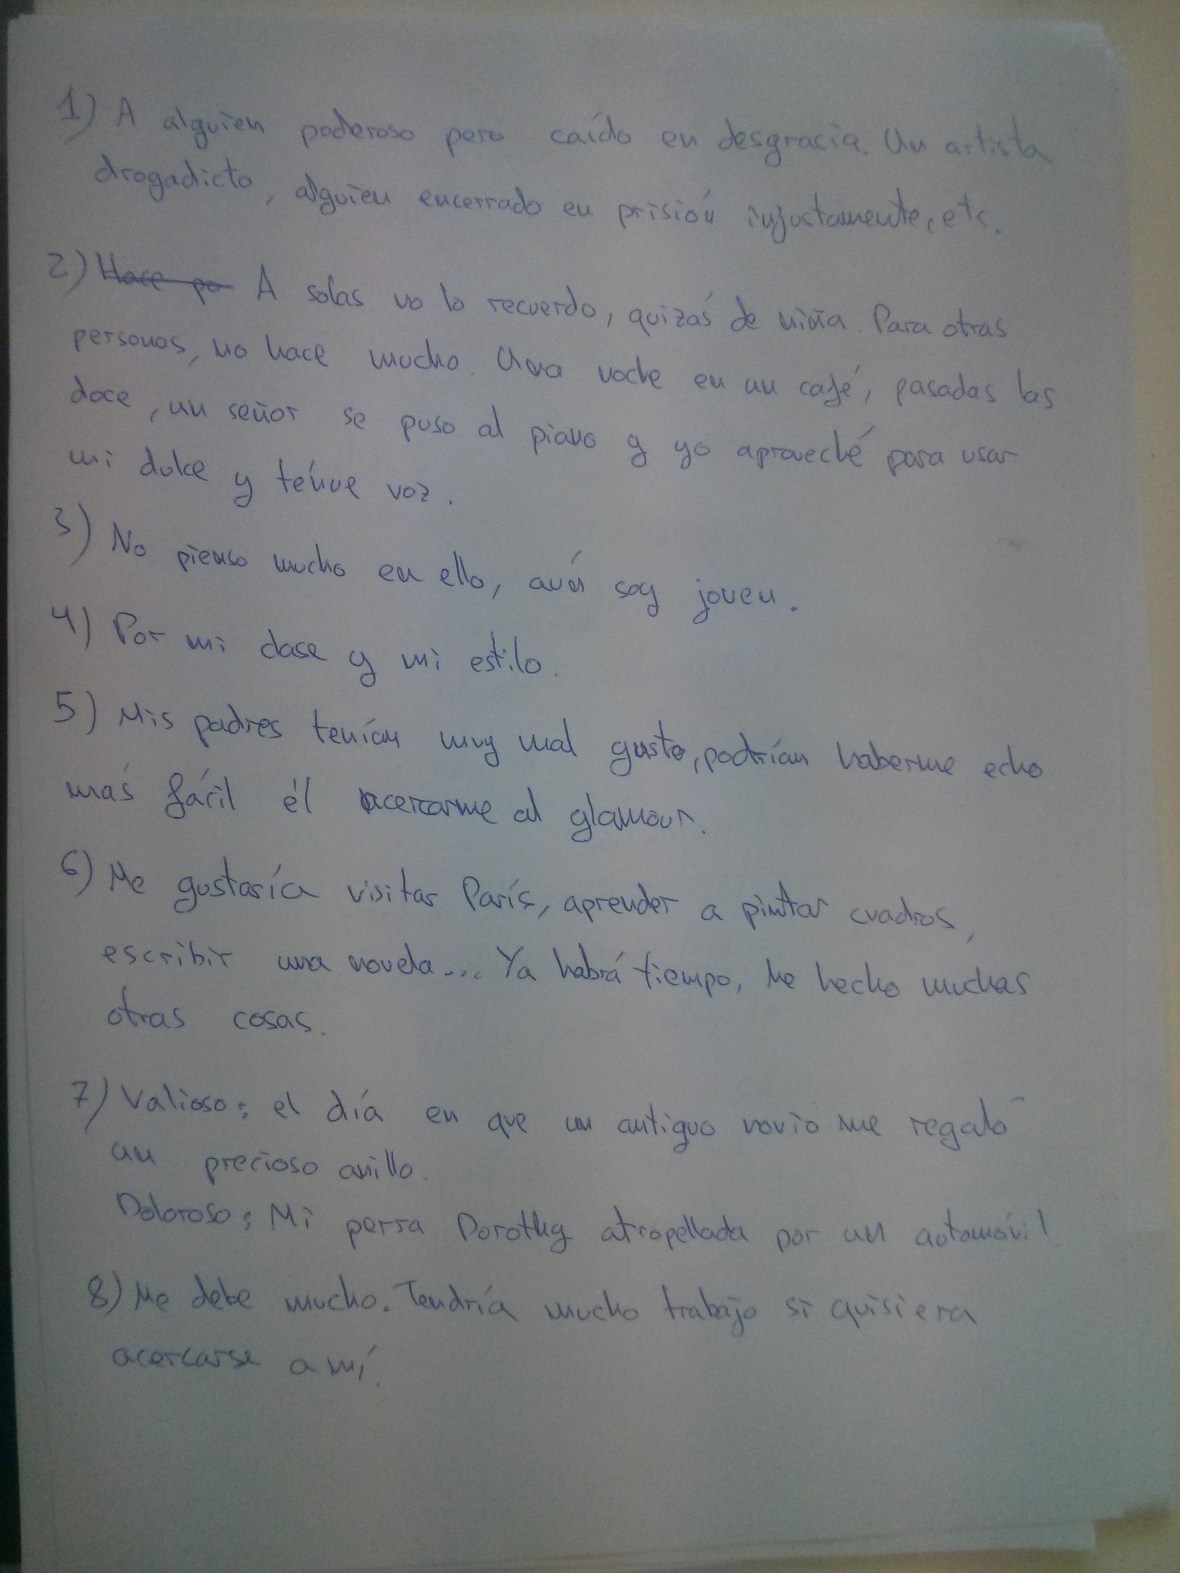 1) A alguien poderoso pero caído en desgracia. Un artista
drogadicto, alguien encerrado en prisión injustamente, etc.
2) Hace po A solas no lo recuerdo, quizás de niña. Para otras
personas, no hace mucho. Una noche en un café, pasadas las
doce, un señor se puso al piano y yo aproveché para usar
mi dulce y ténue voz.
3) No pienso mucho en ello, aún soy joven.
4) Por mi clase y mi estilo.
5) Mis padres tenían muy mal gusto, podrían haberme echo
más fácil él acercarme al glamour.
6) Me gustaría visitar París, aprender a pintar cuadros,
escribir una novela... Ya habrá tiempo, he hecho muchas
otras cosas.
7) Valioso: el día en que un antiguo novio me regaló
un precioso anillo.
Doloroso: Mi perra Dorothy atropellada por un automóvil
8) Me debe mucho. Tendría mucho trabajo si quisiera
acercarse a mí.